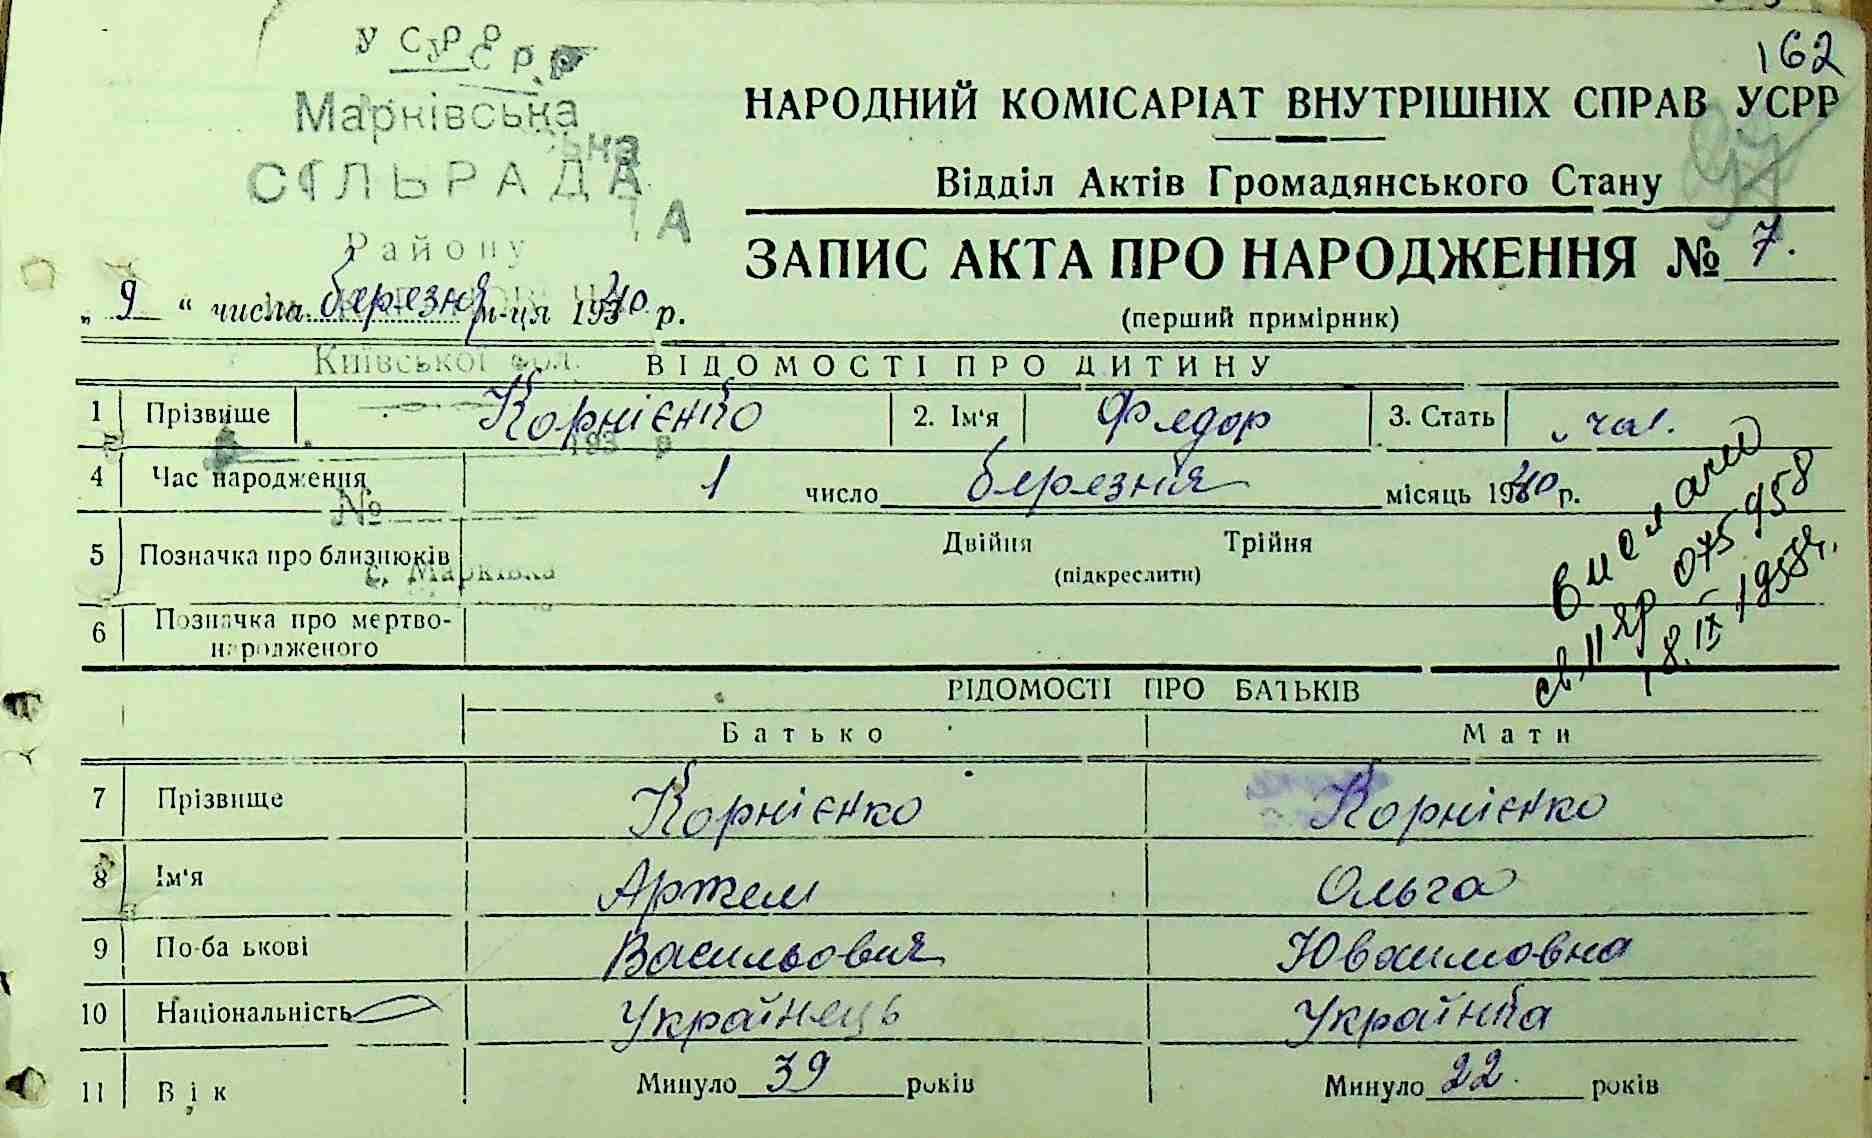 162
УСРР
Марківська
СІЛЬРАДА
Району
Київської обл.
193 р
№
с. Марківка
НАРОДНИЙ КОМІСАРІАТ ВНУТРІШНІХ СПРАВ УСРР
Відділ Актів Громадянського Стану
ЗАПИС АКТА ПРО НАРОДЖЕННЯ № 7.
(перший примірник)
„ 9 “ числа березня м-ця 1940 р.
ВІДОМОСТІ ПРО ДИТИНУ
1 Прізвище Корнієнко 2. Ім'я Федор 3. Стать чол.
4 Час народження 1 число березня місяць 1940 р.
5 Позначка про близнюків Двійня Трійня
(підкреслити)
6 Позначка про мертво-
народженого
св. II 075958
18.IX 1957г.
ВІДОМОСТІ ПРО БАТЬКІВ
Батько Мати
7 Прізвище Корнієнко Корнієнко
8 Ім'я Артем Ольга
9 По-ба ькові Васильович Ювхимовна
10 Національність Українець Українка
11 Вік Минуло 39 років Минуло 22. років